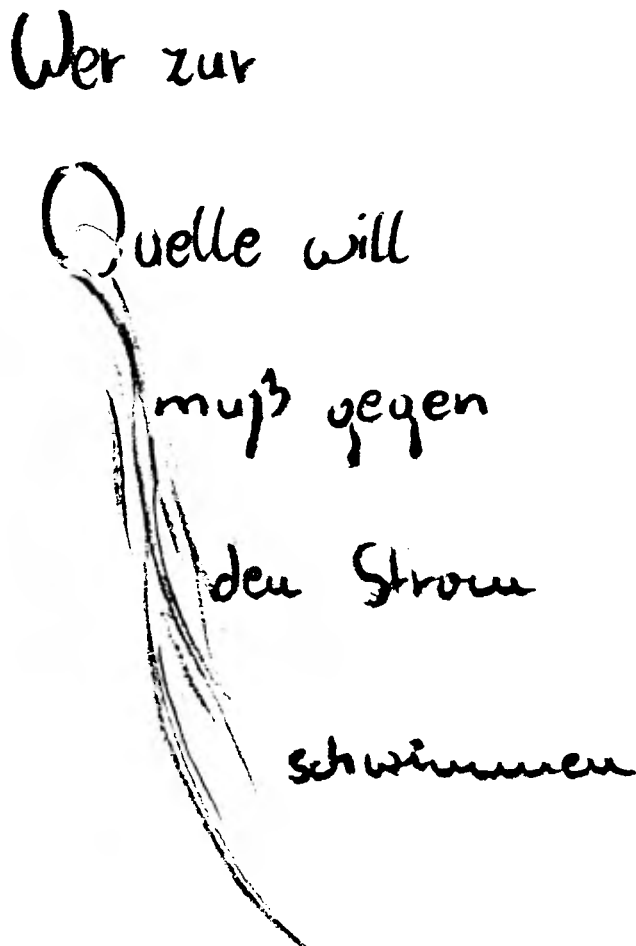 Wer zur
Quelle will
muß gegen
den Strom
schwimmen